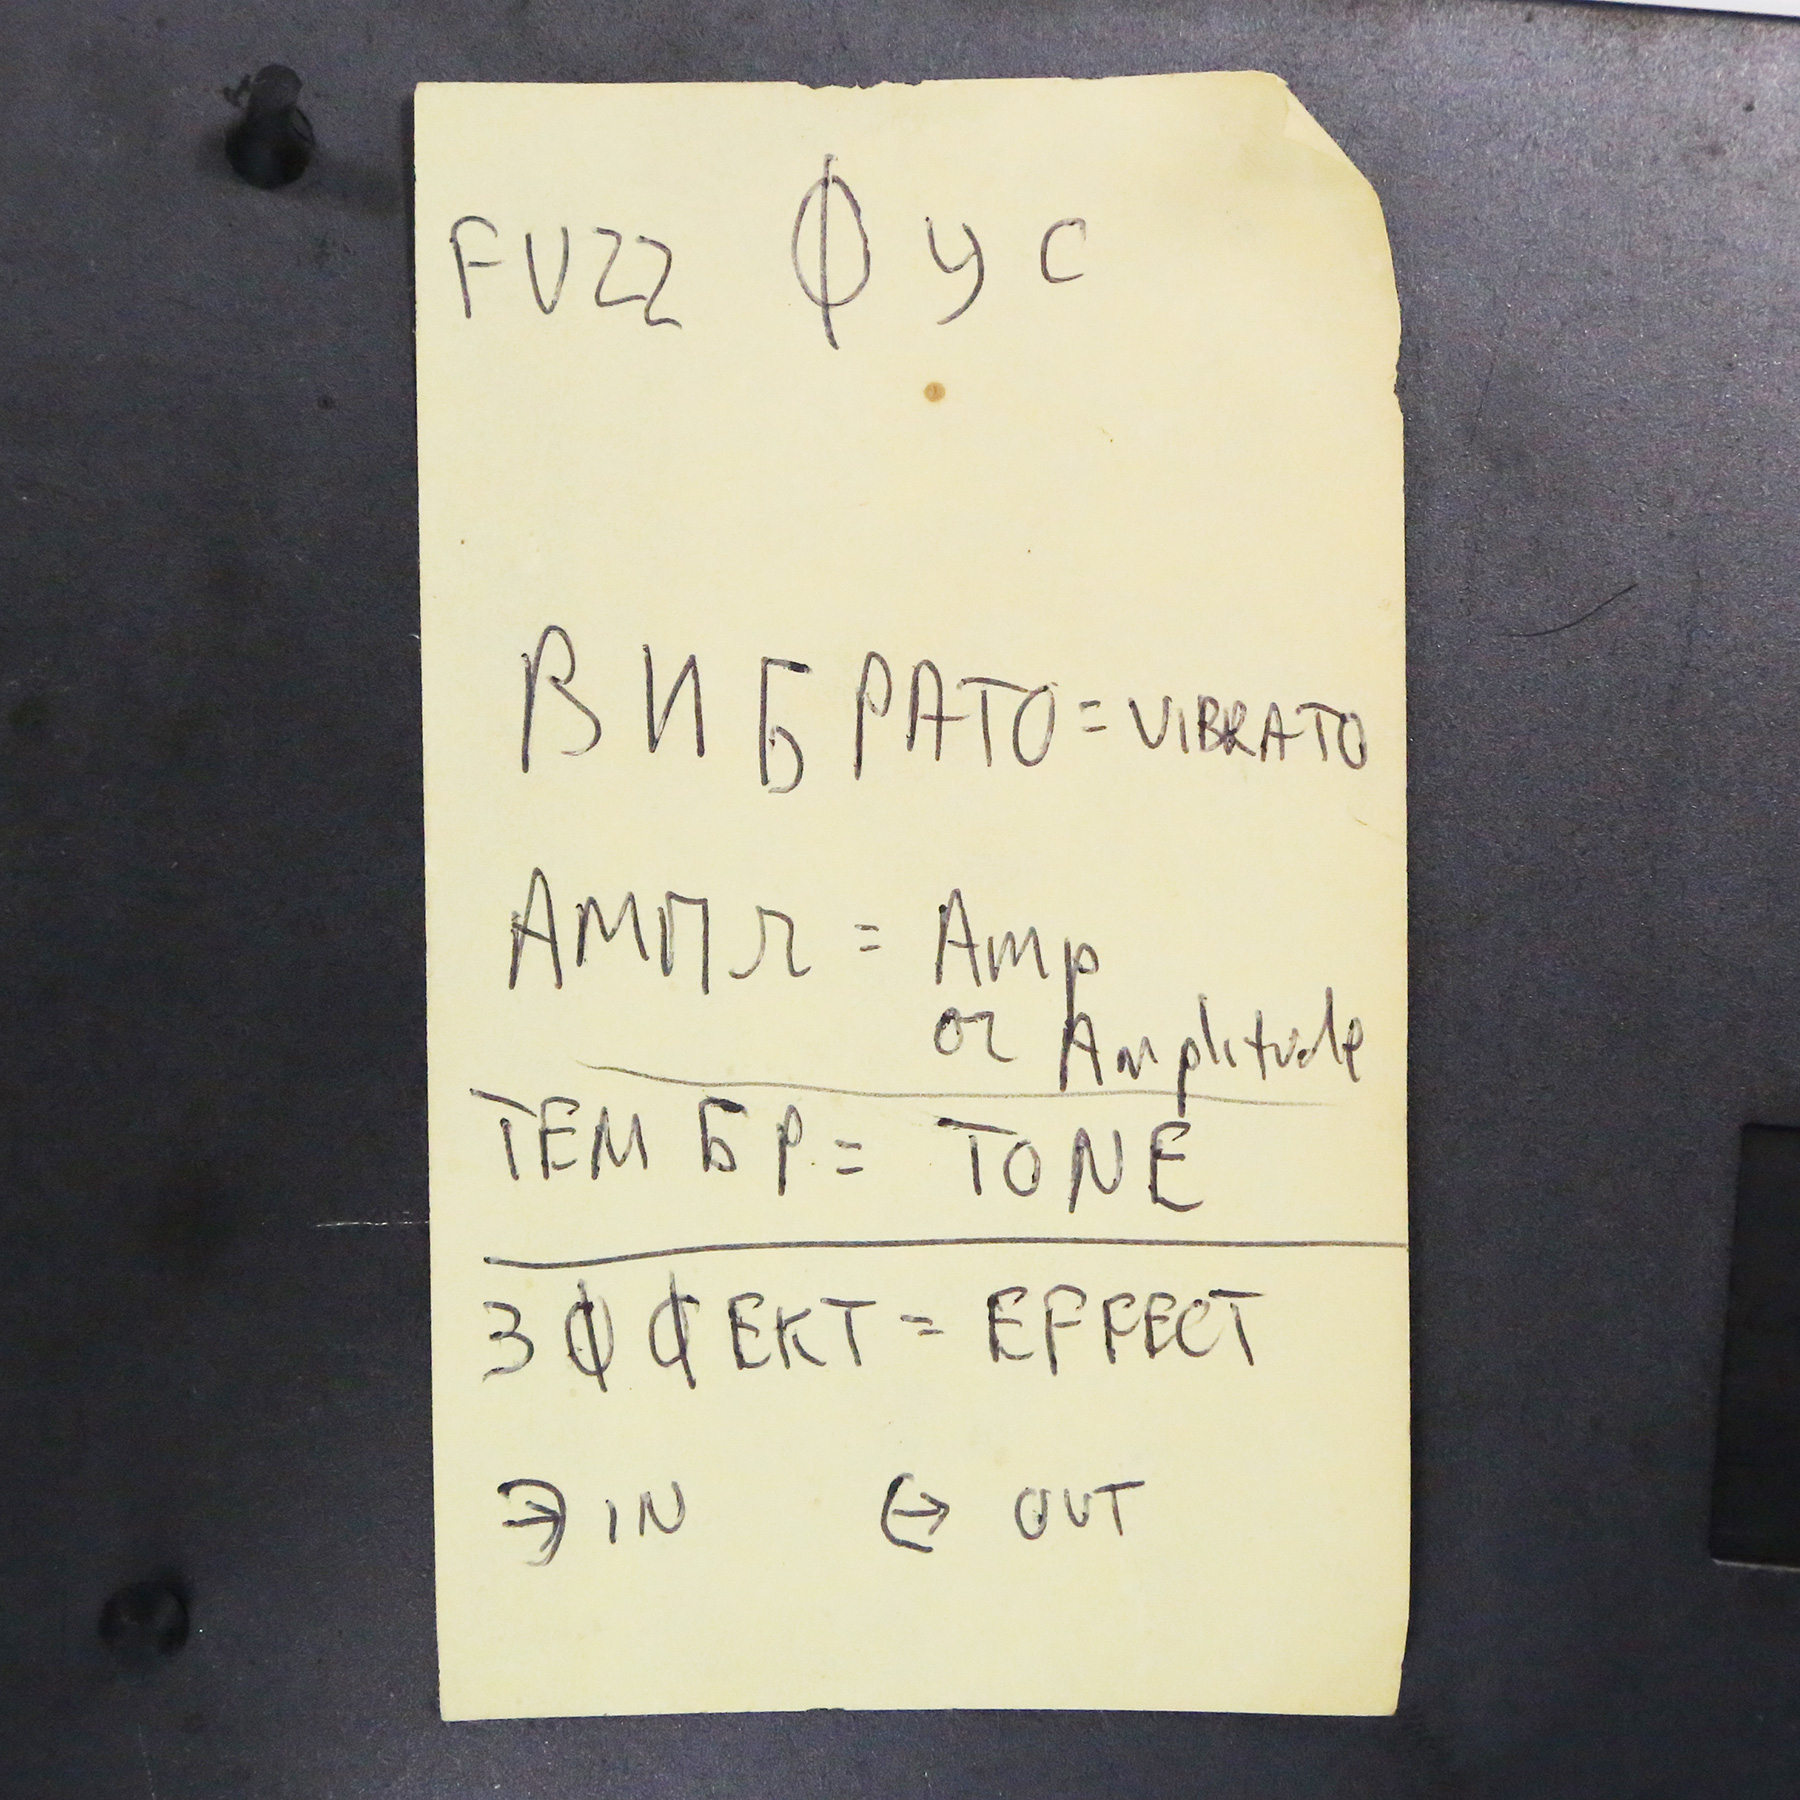 FUZZ ФУС
ВИБРАТО = VIBRATO
АМПЛ = Amp
or Amplitude
ТЕМБР. = TONE
ЗФФЕКТ = EFFECT
IN OUT